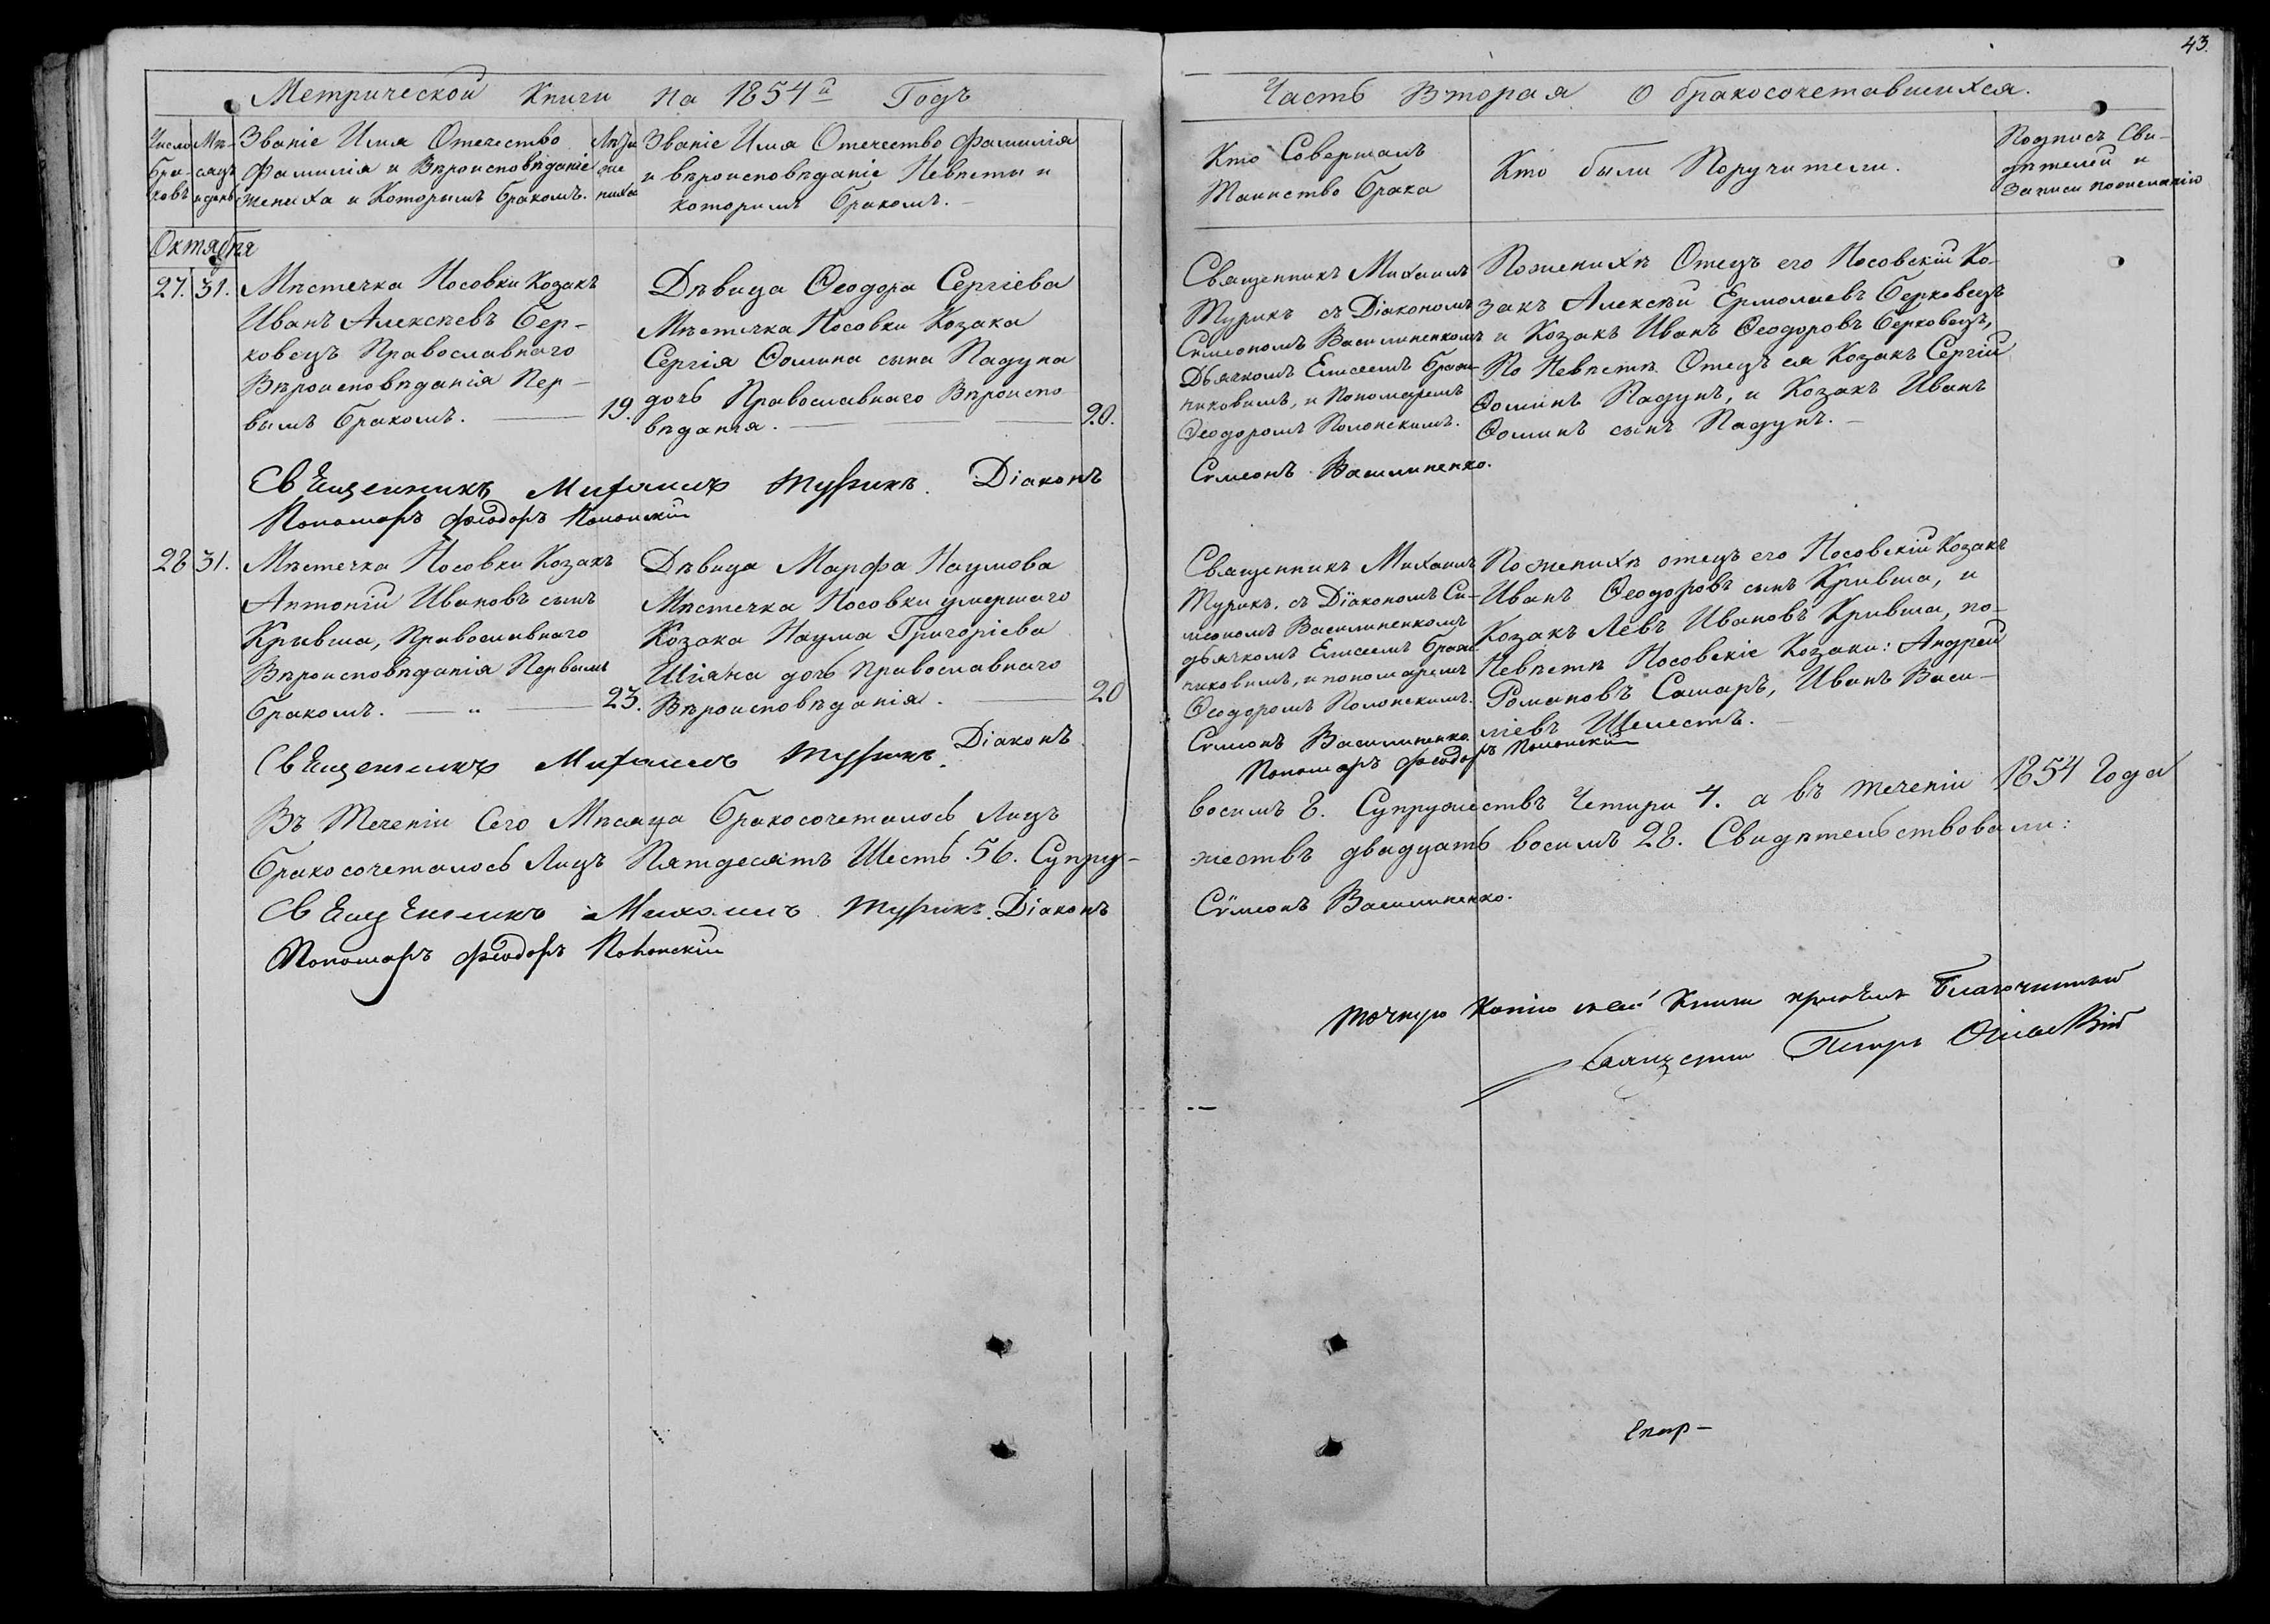 43.
Метрической Книги на 1854й Годъ
Часть Вторая О бракосочетавшихся.
Число бра-ковъ
Мѣ-сяцъ и день
Званіе Имя Отечество
Фамилія и Вѣроисповѣданіе
Жениха и Которымъ бракомъ.
Лѣта жениха
Званіе Имя Отечество Фамилія
и вѣроисповѣданіе Невѣсты и
которимъ бракомъ.
Кто Совершалъ
Таинство брака
Кто были Поручители.
Подписъ Сви-
дѣтелей и
записи по желанію
Октября
27. 31.
Мѣстечка Носовки Козакъ
Иванъ Алексѣевъ Бер-
ковецъ Православнаго
Вѣроисповѣданія Пер-
вымъ бракомъ. 19.
Дѣвица Ѳеодора Сергіева
Мѣстечка Носовки Козака
Сергія Ѳомина сына Падуна
дочъ Православнаго Вѣроиспо-
вѣданія. 20.
Священникъ Михаилъ
Турикъ съ Діакономъ
Сѵмеономъ Василиненкомъ
Дьячкомъ Елисеемъ Бражни-
чковимъ, и Пономаремъ
Ѳеодоромъ Полонскимъ.
По женихѣ Отецъ его Носовскій Ко-
закъ Алексѣй Ермолаевъ Берковецъ
и Козакъ Иванъ Ѳеодоровъ Берковецъ,
По Невѣстѣ Отецъ ея Козакъ Сергій
Ѳоминъ Падунъ, и Козакъ Иванъ
Ѳоминъ сынъ Падунъ.
Священникъ Михаилъ Турикъ. Діаконъ
Сѵмеонъ Василиненко.
Пономаръ Феодоръ Полонскій
28 31.
Мѣстечка Носовки Козакъ
Антоній Ивановъ сынъ
Кривша, Православнаго
Вѣроисповѣданія Первымъ
бракомъ. 23.
Дѣвица Марфа Наумова
Мѣстечка Носовки умершаго
Козака Наума Григоріева
дочъ Православнаго
Вѣроисповѣданія. 20
Священникъ Михаилъ
Турикъ. съ Діакономъ Си-
меономъ Василиненкомъ
дьячкомъ Елисеемъ Бражни-
чковимъ, и пономаремъ
Ѳеодоромъ Полонскимъ.
По женихѣ отецъ его Носовскій Козакъ
Иванъ Ѳеодоровъ сынъ Кривша, и
Козакъ Левъ Ивановъ Кривша, по-
Невѣстѣ Носовскіе Козаки: Андрей
Романовъ Самаръ, Иванъ Васи-
ліевъ Шелестъ.
Священникъ Михаилъ Турикъ. Діаконъ
Сѵмеонъ Василиненко.
Пономаръ Феодоръ Полонскій
Въ Теченіи Сего Мѣсяца бракосочеталось Лицъ
восимъ 8. Супружествъ Четири 4. а въ теченіи 1854 Года
бракосочеталось Лицъ Пятдесятъ Шесть. 56. Супру-
жествъ двадцать восимъ 28. Свидѣтельствовали:
Священникъ Михаилъ Турикъ. Діаконъ
Сѵмеонъ Василиненко.
Пономаръ Феодоръ Полонскій
Точную Копію сей Книги принялъ Благочинный
Священникъ Петръ